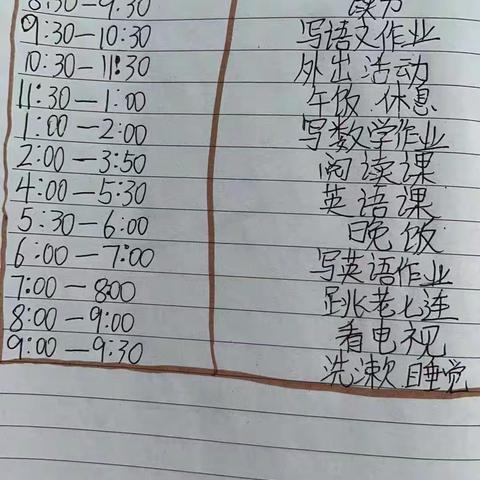 8:30—9:30 读书
9:30—10:30 写语文作业
10:30—11:30 外出活动
11:30—1:00 午饭 休息
1:00—2:00 写数学作业
2:00—3:50 阅读课
4:00—5:30 英语课
5:30—6:00 晚饭
6:00—7:00 写英语作业
7:00—8:00 跳老七连
8:00—9:00 看电视
9:00—9:30 洗漱 睡觉